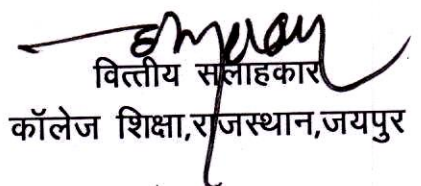 वित्तीय सलाहकार
कॉलेज शिक्षा,राजस्थान,जयपुर